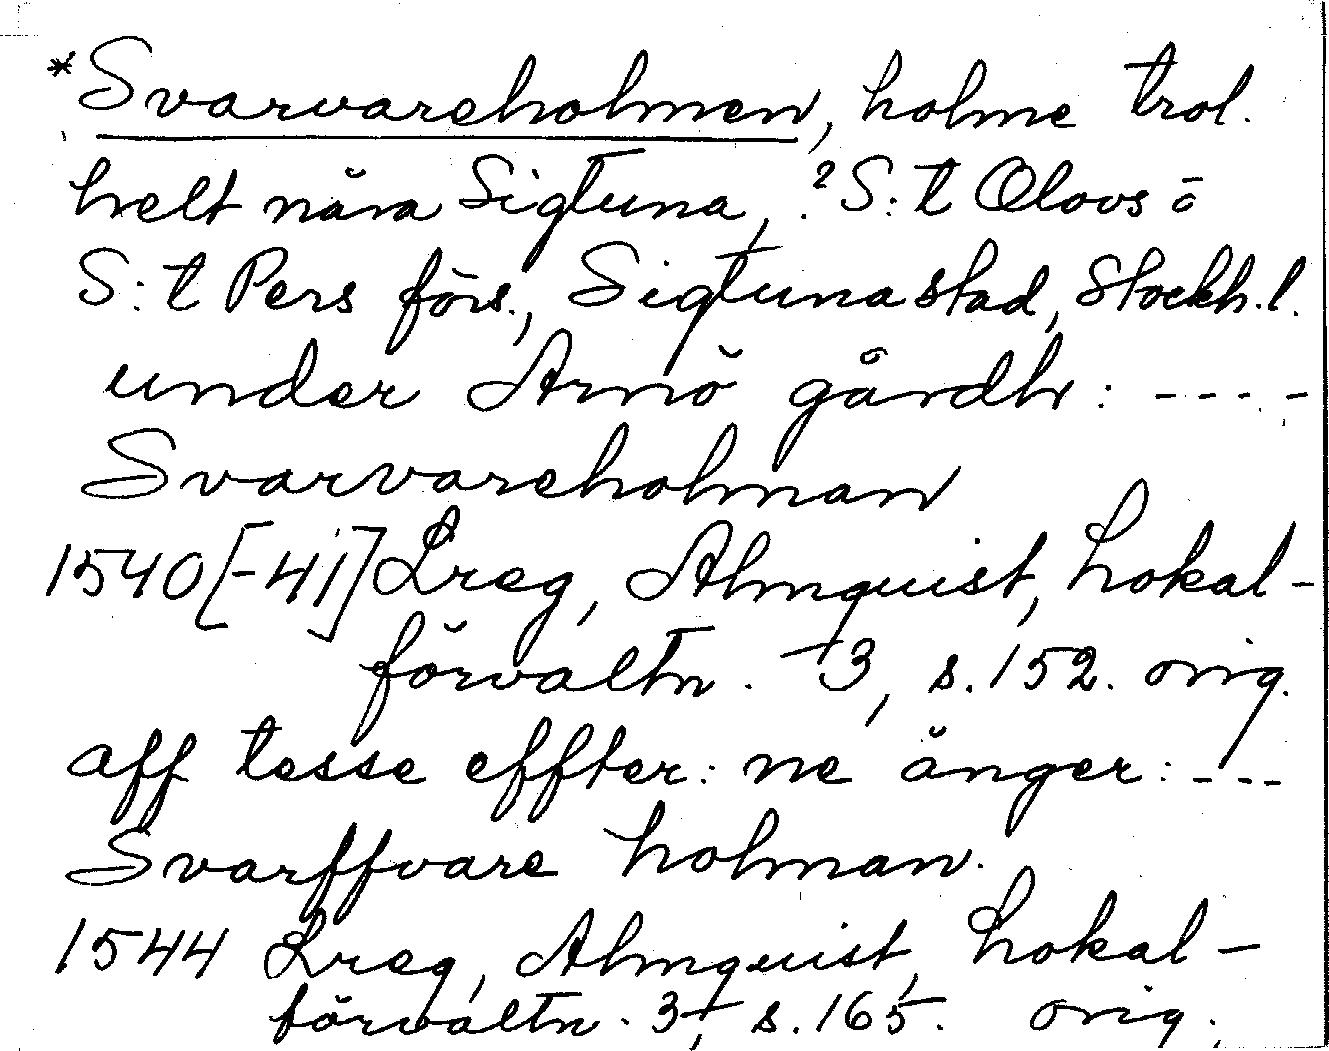 *Svarvareholmen, holme trol.
helt nära Sigtuna, ? S:t Olovs o
S:t Pers förs., Sigtuna stad, Stockh.l.
under Arnö gårdh: ----
Svarvareholman
1540[-41] Lreg, Almquist, Lokal-
förvaltn. 3, s.152. orig.
aff tesse effter: ne änger: ---
Svarffvare holman.
1544 Lreg, Almquist, Lokal-
förvaltn. 3, s.165. orig.